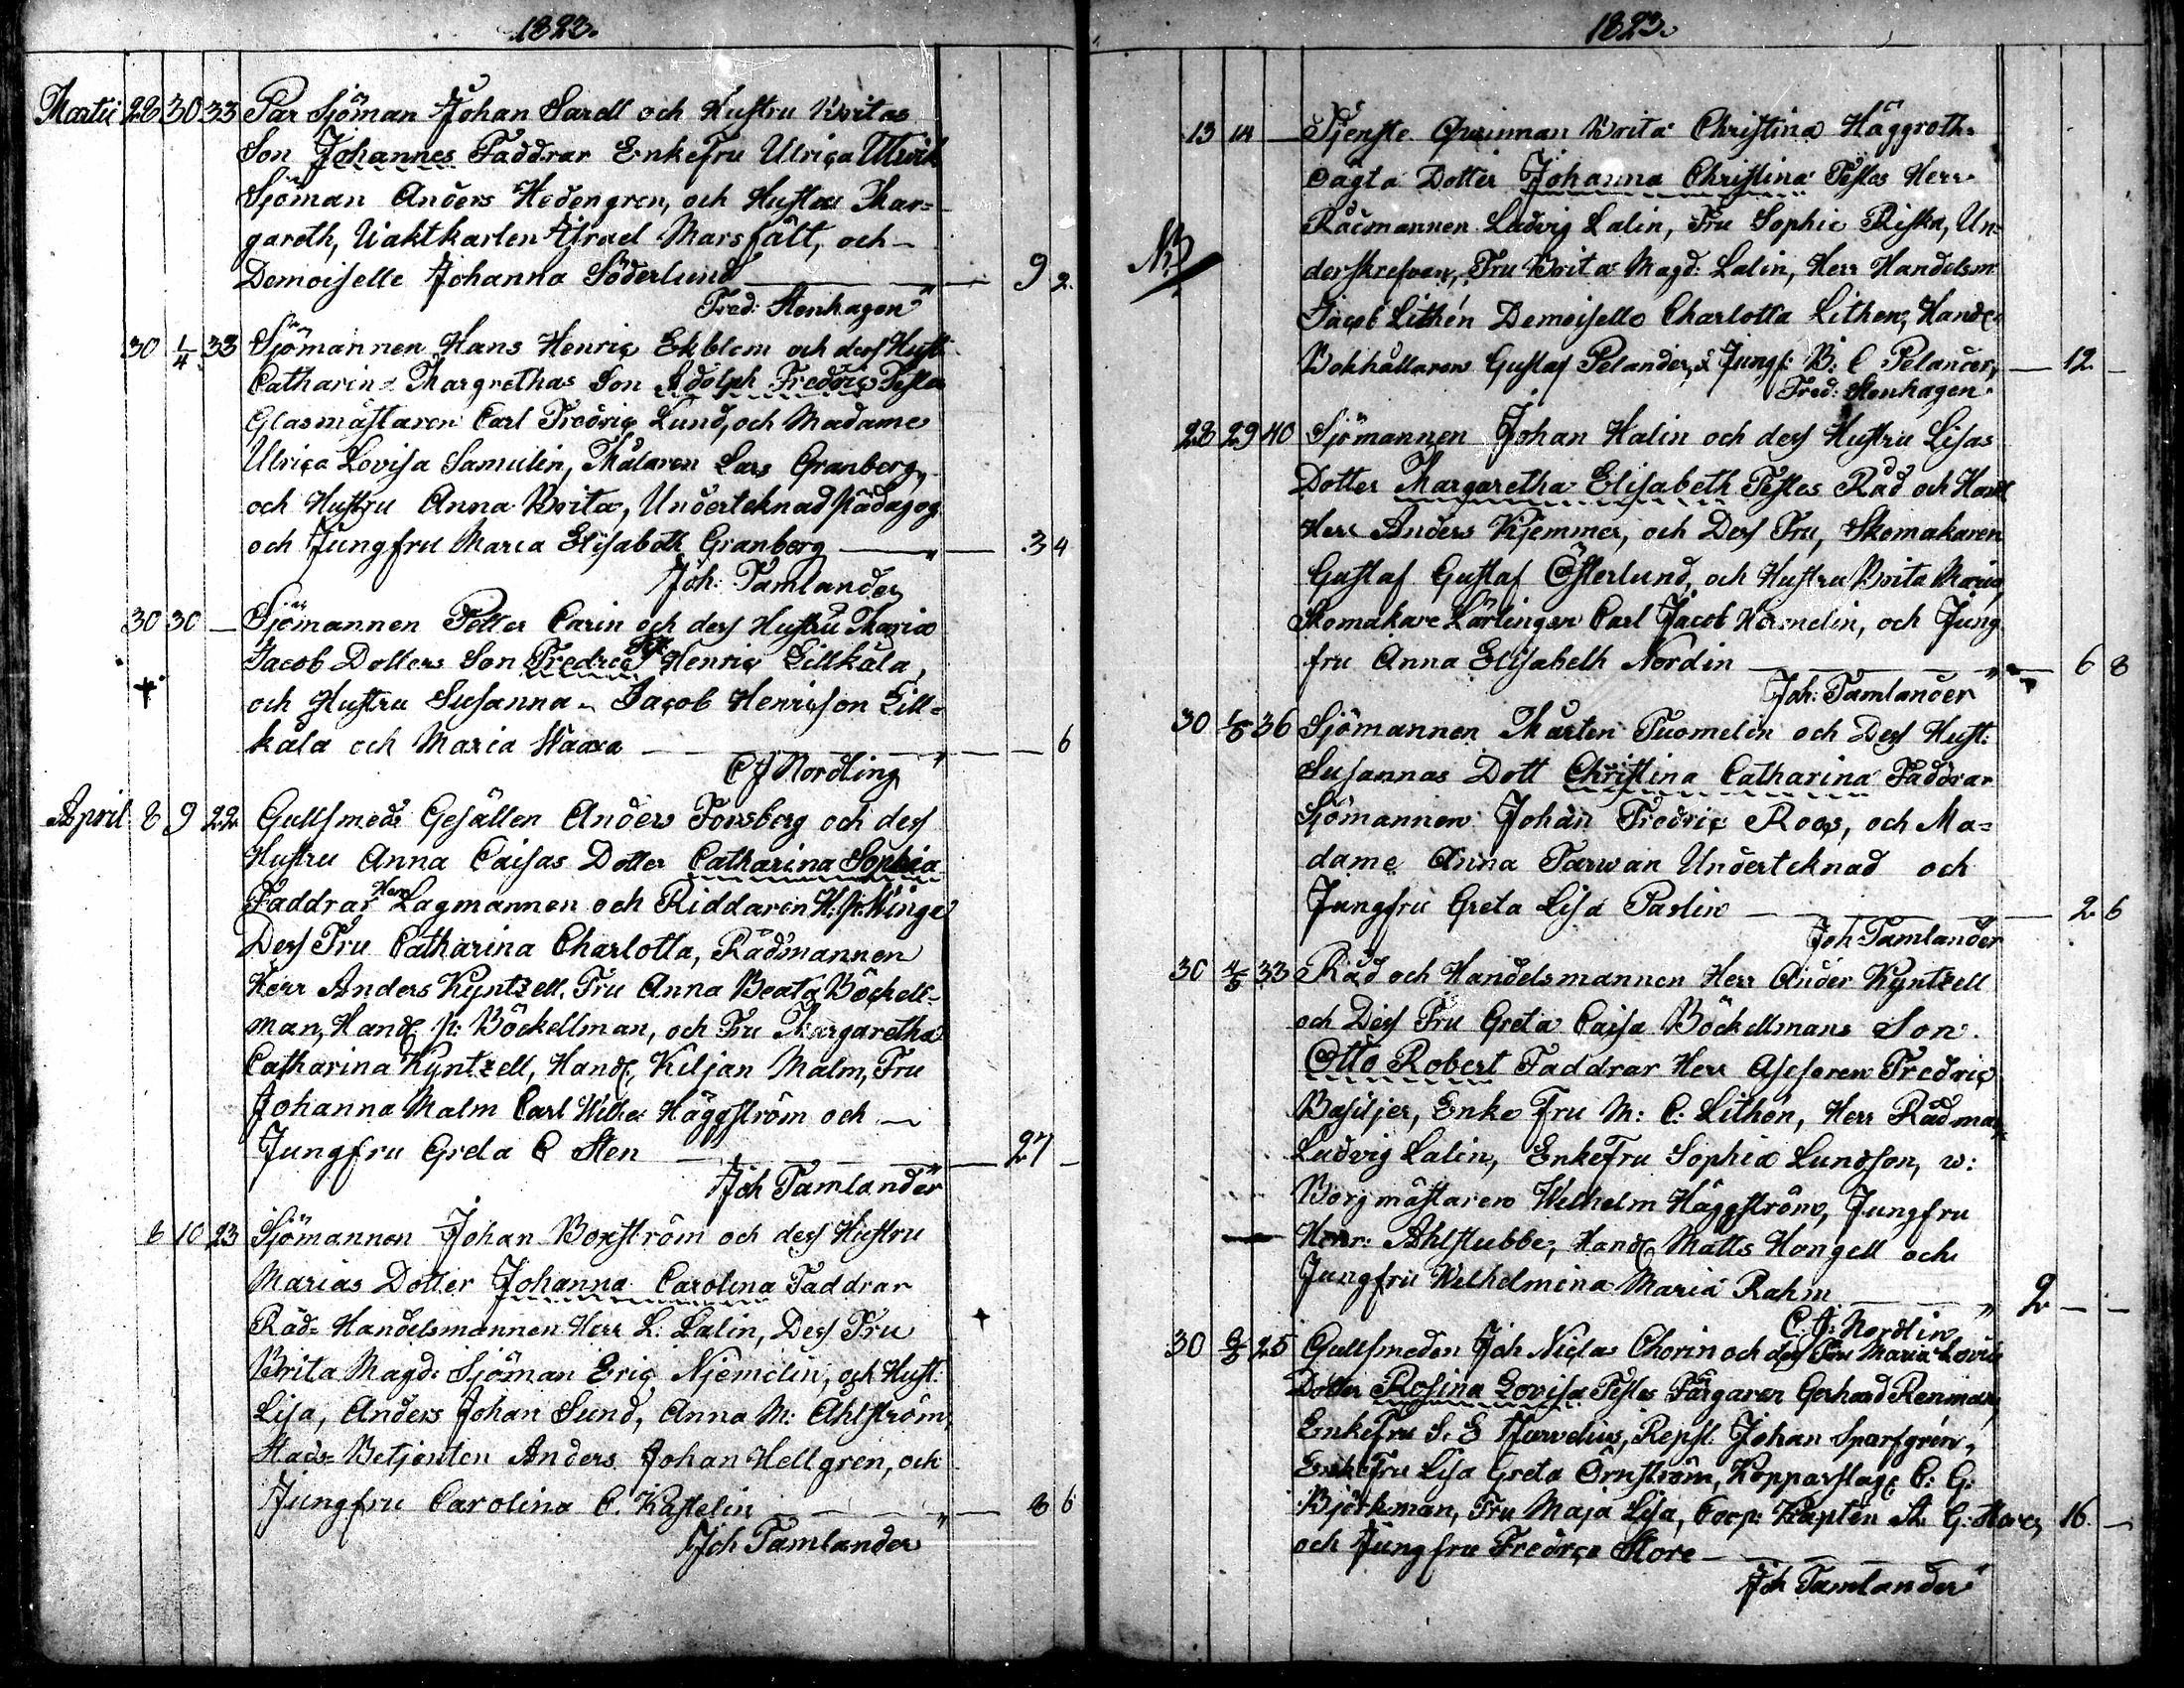 1823.
Martii 28 30 33 Par Sjöman Johan Sardl och Hustru Britas
Son Johannes Faddrar Enkefru Ulrica
Sjöman Anders Hedengren, och Hustru Mar=
gareth, Vaktkarlen Israel Marsfält, och
Demoiselle Johanna Söderlund 9 2.
Fred: Stenhagen
30 1/4 33 Sjömannen Hans Henric Ekblom och dess Hust
Catharina Margrethas Son Adolph Fredric Testes
Glasmästaren Carl Fredric Lund, och Madame
Ulrica Lovisa Samulin, Målaren Lars Granberg,
och Hustru Anna Brita, Underteknad Pädagog
och Jungfru Maria Elisabeth Granberg 3 4
Joh: Tamlander
30 30 Sjömannen Petter Carin och dess Hustru Maria
Jacob Dotters Son Fredric Henric Lillkåla,
och Hustru Susanna Jacob Henricson Lill=
kåla och Maria Waara 6
C J Nordling
April 8 9 22 Gullsmeds Gesällen Anders Forsberg och dess
Hustru Anna Caisas Dotter Catharina Sophia
Faddrar Herr Lagmannen och Riddaren H. Winge
Dess Fru Catharina Charlotta, Rådsmannen
Herr Anders Kyntzell, Fru Anna Beata Böckell=
man, Hand: P: Böckellman, och Fru Margaretha
Catharina Kyntzell, Hand: Kiljan Malm, Fru
Johanna Malm Carl Wilhe: Häggström och
Jungfru Greta C Sten 27
Joh Tamlander
6 10 23 Sjömannen Johan Boxström och dess Hustru
Marias Dotter Johanna Carolina Faddrar
Råd= Handelsmannen Herr L: Lalin, Dess Fru
Brita Magd: Sjöman Eric Njemelin, och Hust:
Lisa, Anders Johan Sund, Anna M: Ahlström,
Stads= Betjenten Anders Johan Hellgren, och
Jungfru Carolina C. Kastelin 8 6
Joh Tamlander
1823.
13 14 Tjenste Qvinnan Brita Christina Häggroths
oägta Dotter Johanna Christina Testes Herr
Rådmannen Ludvig Lalin, Fru Sophie Riska, Un=
derskrefvan, Fru Brita Magd: Lalin, Herr Handelsm:
Jacob Lithén Demoiselle Charlotta Lithen, Hand:
Bokhållaren Gustaf Pelander, & Jungf: B: C Pelander, 12
Fred: Stenhagen
28 29 40 Sjömannen Johan Halin och dess Hustru Lisas
Dotter Margaretha Elisabeth Testes Råd och Hand
Herr Anders Kjemmer, och Dess Fru, Skomakaren
Gustaf Gustaf Österlund, och Hustru Brita Maria,
Skomakare Lärlingen Carl Jacob Hermelin, och Jung
fru Anna Elisabeth Nordin 6 8
Joh: Tamlander
30 1/5 36 Sjömannen Mårten Tuomelin och Dess Hust:
Susannas Dott Christina Catharina Faddrar
Sjömannen Johan Fredric Roos, och Ma=
dame Anna Tarwan Undertcknad och
Jungfru Greta Lisa Parlin 2 6
Joh Tamlander
30 4/5 33 Råd och Handelsmannen Herr Ander Kyntzell
och Dess Fru Greta Caisa Böckellmans Son
Otto Robert Faddrar Herr Asessoren Fredric
Basiljer, Enke Fru M: C: Lithén, Herr Rådman
Ludvig Lalin, Enkefru Sophia Lundson, v:
Borgmästaren Wilhelm Häggström, Jungfru
Henr: Ahlstubbe, Hand: Matts Hongell och
Jungfru Wilhelmina Maria Rahm 2
C. J: Nordlin
30 25 Gullsmeden Joh Niclas Chorin och dess Fru Maria Lovis
Dotter Rosina Lovisa Testes Färgaren Gerhard Renman,
Enkefru S. E Harvelius, Repsl: Johan Sparfgrén,
Enkefru Lisa Greta Örnström, Kopparslag: C: G:
Björkman, Fru Maja Lisa, Coop: Kapten A. G: 16
och Jungfru Fredrica Store
Joh Tamlander